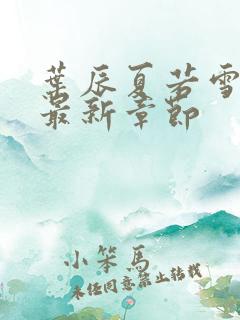 葉辰夏若雪
最新章節
小笨馬
未经同意禁止转载